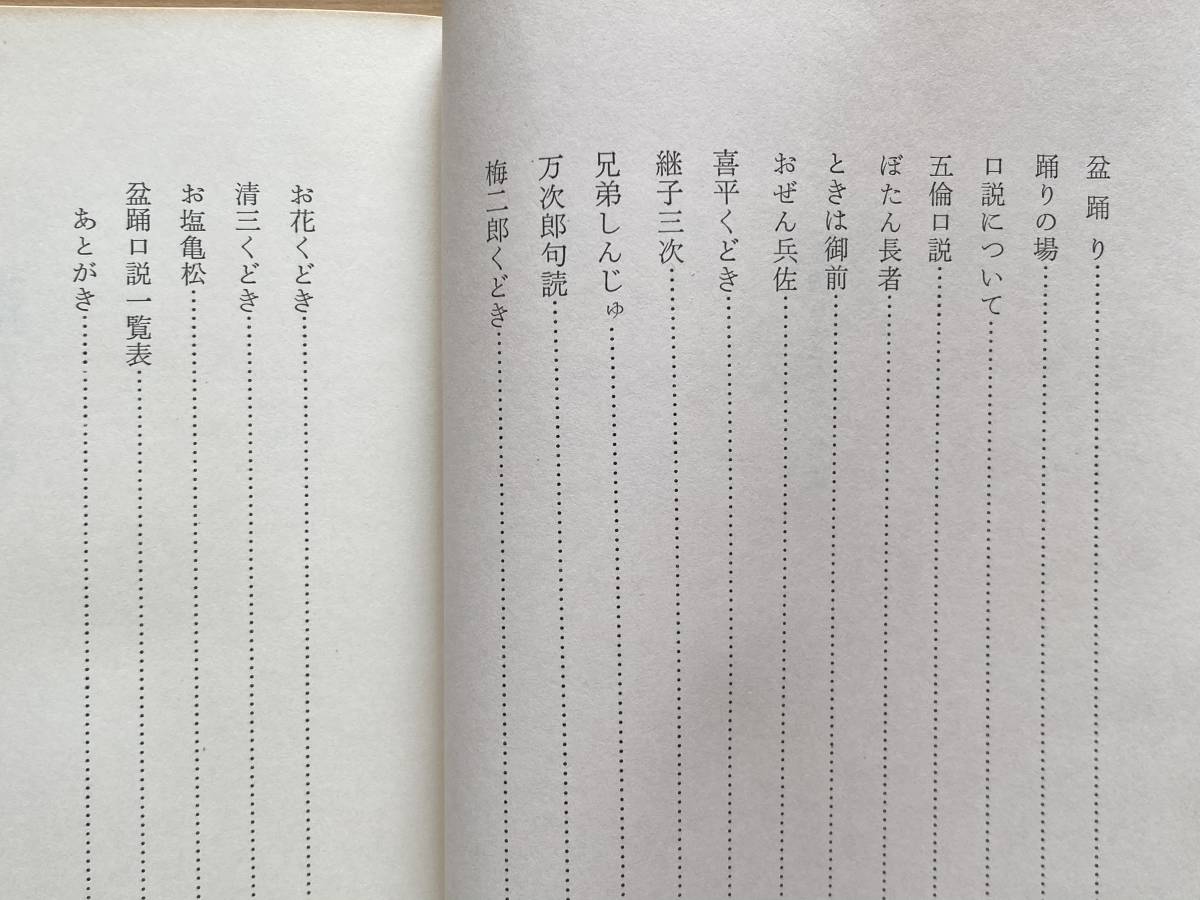 盆踊り……………………………
踊りの場……………………………
口説について……………………………
五倫口説……………………………
ぼたん長者……………………………
ときは御前……………………………
おぜん兵佐……………………………
喜平くどき……………………………
継子三次……………………………
兄弟しんじゅ……………………………
万次郎句読……………………………
梅二郎くどき……………………………
お花くどき……………………………
清三くどき……………………………
お塩亀松……………………………
盆踊口説一覧表……………………………
あとがき……………………………